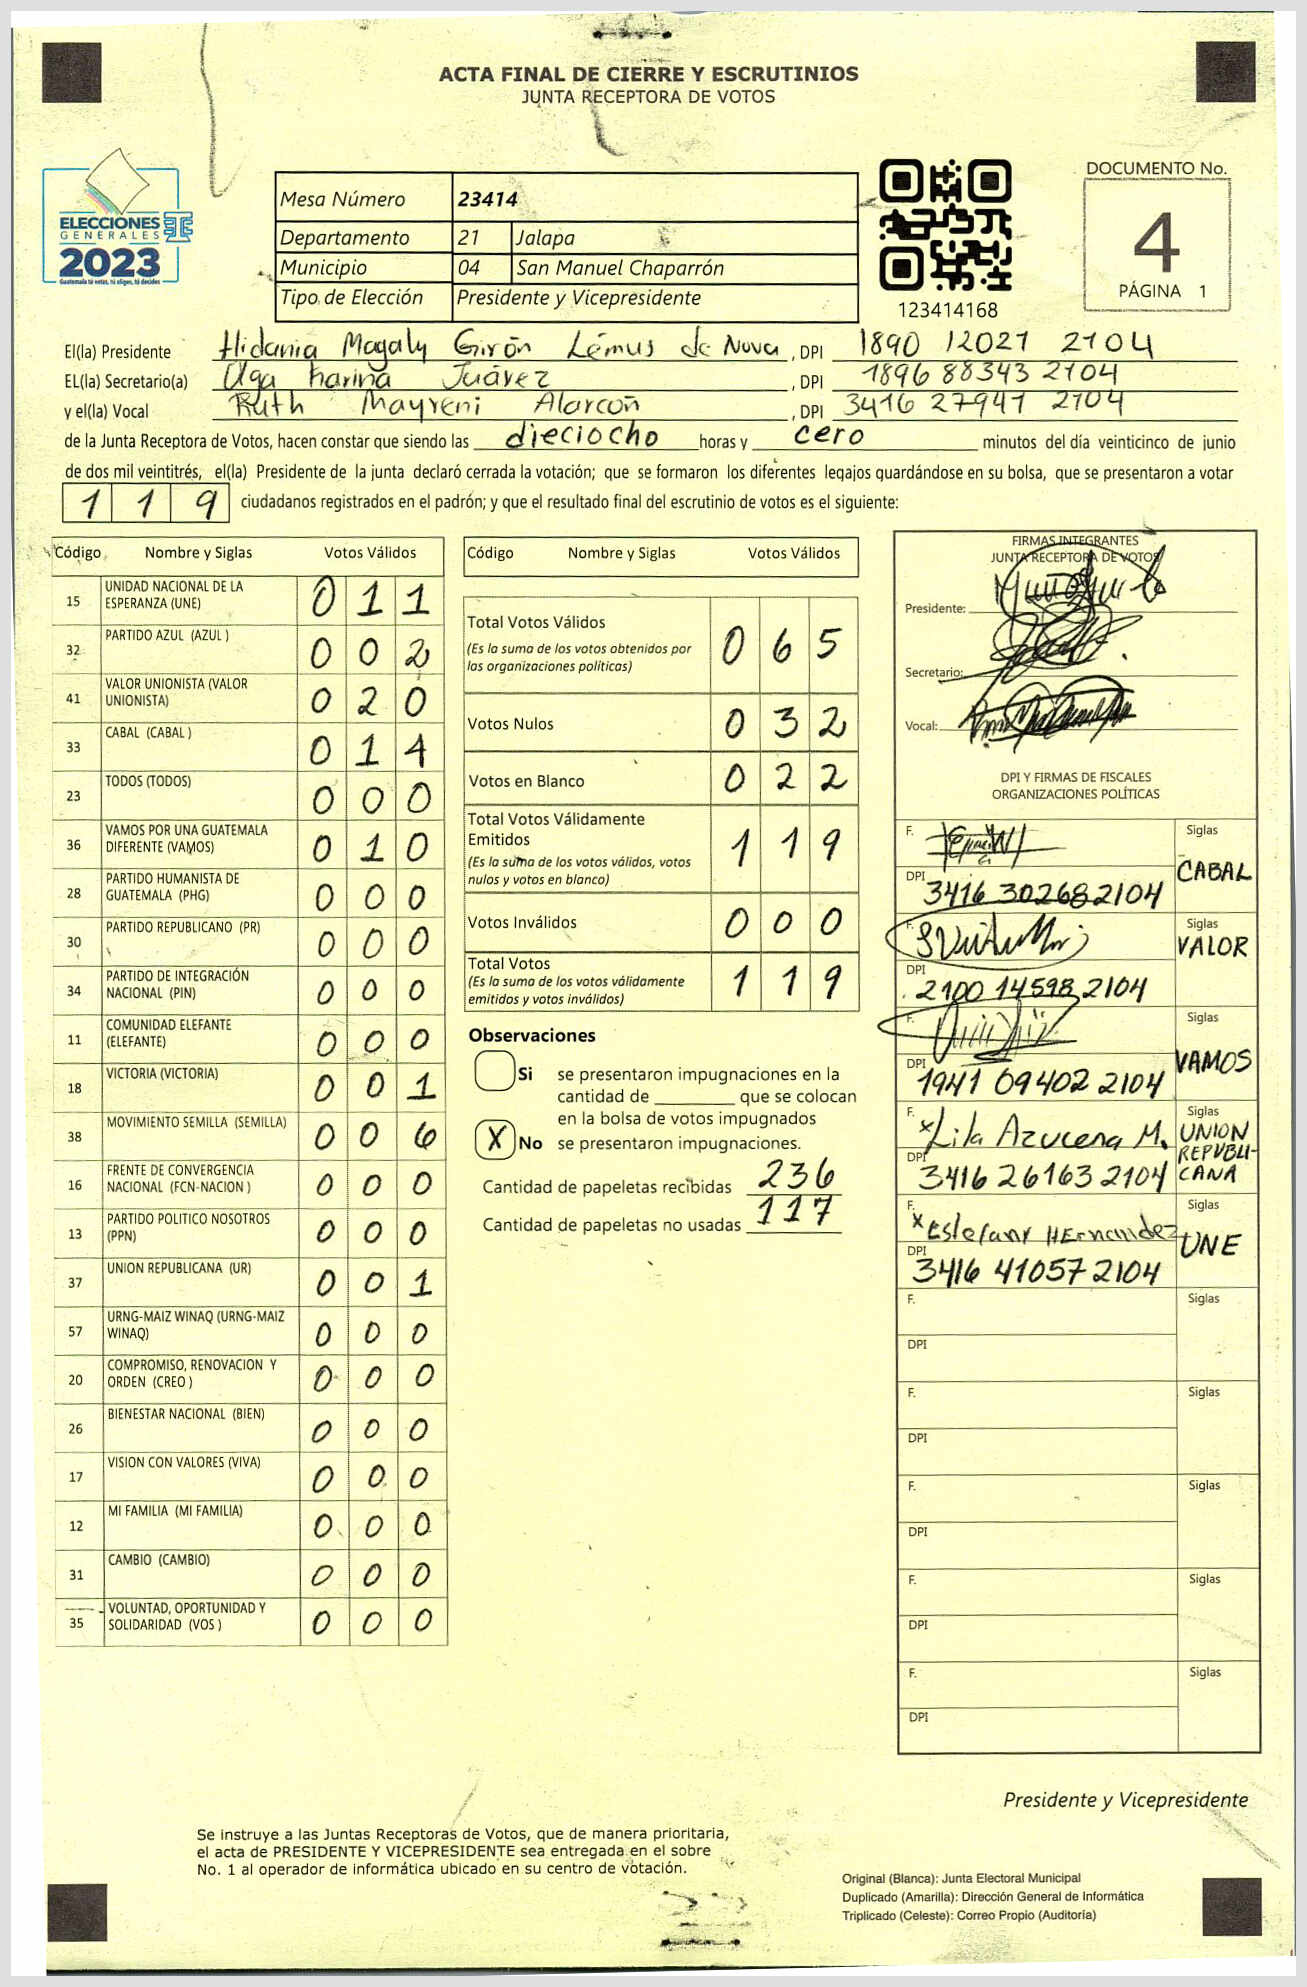 ACTA FINAL DE CIERRE Y ESCRUTINIOS
JUNTA RECEPTORA DE VOTOS
ELECCIONES
GENERALES
2023
Guatemala tú votas, tú eliges, tú decides
Mesa Número 23414
Departamento 21 Jalapa
Municipio 04 San Manuel Chaparrón
Tipo de Elección Presidente y Vicepresidente
123414168
DOCUMENTO No.
4
PÁGINA 1
El(la) Presidente Hidania Magaly Girón Lémus de Nova, DPI 1890 12021 2104
EL(la) Secretario(a) Olga Karina Juárez, DPI 1896 88343 2104
y el(la) Vocal Ruth Mayreni Alarcón, DPI 3416 27941 2104
de la Junta Receptora de Votos, hacen constar que siendo las dieciocho horas y cero minutos del día veinticinco de junio
de dos mil veintitrés, el(la) Presidente de la junta declaró cerrada la votación; que se formaron los diferentes legajos guardándose en su bolsa, que se presentaron a votar
119 ciudadanos registrados en el padrón; y que el resultado final del escrutinio de votos es el siguiente:
Código Nombre y Siglas Votos Válidos
15 UNIDAD NACIONAL DE LA ESPERANZA (UNE) 0 1 1
32 PARTIDO AZUL (AZUL ) 0 0 2
41 VALOR UNIONISTA (VALOR UNIONISTA) 0 2 0
33 CABAL (CABAL ) 0 1 4
23 TODOS (TODOS) 0 0 0
36 VAMOS POR UNA GUATEMALA DIFERENTE (VAMOS) 0 1 0
28 PARTIDO HUMANISTA DE GUATEMALA (PHG) 0 0 0
30 PARTIDO REPUBLICANO (PR) 0 0 0
34 PARTIDO DE INTEGRACIÓN NACIONAL (PIN) 0 0 0
11 COMUNIDAD ELEFANTE (ELEFANTE) 0 0 0
18 VICTORIA (VICTORIA) 0 0 1
38 MOVIMIENTO SEMILLA (SEMILLA) 0 0 6
16 FRENTE DE CONVERGENCIA NACIONAL (FCN-NACION ) 0 0 0
13 PARTIDO POLITICO NOSOTROS (PPN) 0 0 0
37 UNION REPUBLICANA (UR) 0 0 1
57 URNG-MAIZ WINAQ (URNG-MAIZ WINAQ) 0 0 0
20 COMPROMISO, RENOVACION Y ORDEN (CREO ) 0 0 0
26 BIENESTAR NACIONAL (BIEN) 0 0 0
17 VISION CON VALORES (VIVA) 0 0 0
12 MI FAMILIA (MI FAMILIA) 0 0 0
31 CAMBIO (CAMBIO) 0 0 0
35 VOLUNTAD, OPORTUNIDAD Y SOLIDARIDAD (VOS ) 0 0 0
Código Nombre y Siglas Votos Válidos
Total Votos Válidos 0 6 5
(Es la suma de los votos obtenidos por
las organizaciones políticas)
Votos Nulos 0 3 2
Votos en Blanco 0 2 2
Total Votos Válidamente
Emitidos 1 1 9
(Es la suma de los votos válidos, votos
nulos y votos en blanco)
Votos Inválidos 0 0 0
Total Votos 1 1 9
(Es la suma de los votos válidamente
emitidos y votos inválidos)
Observaciones
Si se presentaron impugnaciones en la
cantidad de ________ que se colocan
en la bolsa de votos impugnados
X No se presentaron impugnaciones.
Cantidad de papeletas recibidas 236
Cantidad de papeletas no usadas 117
FIRMAS INTEGRANTES
JUNTA RECEPTORA DE VOTOS
Presidente:
Secretario:
Vocal:
DPI Y FIRMAS DE FISCALES
ORGANIZACIONES POLÍTICAS
F. Siglas
CABAL
DPI 3416 30268 2104
F. Siglas
VALOR
DPI 2100 14598 2104
F. Siglas
VAMOS
DPI 1941 09402 2104
F. x Lila Azucena M. Siglas
UNION
REPUBLI-
CANA
DPI 3416 26163 2104
F. x Estefany HErnandez Siglas
UNE
DPI 3416 41057 2104
F. Siglas
DPI
F. Siglas
DPI
F. Siglas
DPI
F. Siglas
DPI
F. Siglas
DPI
Presidente y Vicepresidente
Se instruye a las Juntas Receptoras de Votos, que de manera prioritaria,
el acta de PRESIDENTE Y VICEPRESIDENTE sea entregada en el sobre
No. 1 al operador de informática ubicado en su centro de votación.
Original (Blanca): Junta Electoral Municipal
Duplicado (Amarilla): Dirección General de Informática
Triplicado (Celeste): Correo Propio (Auditoría)